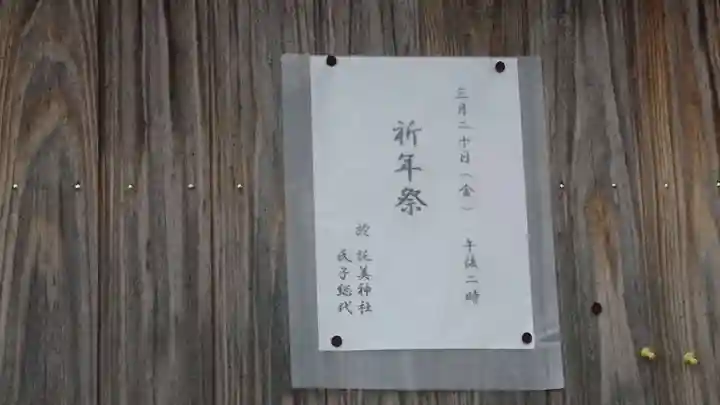 三月二十日(金) 午後二時
祈年祭
於 託美神社
氏子総代